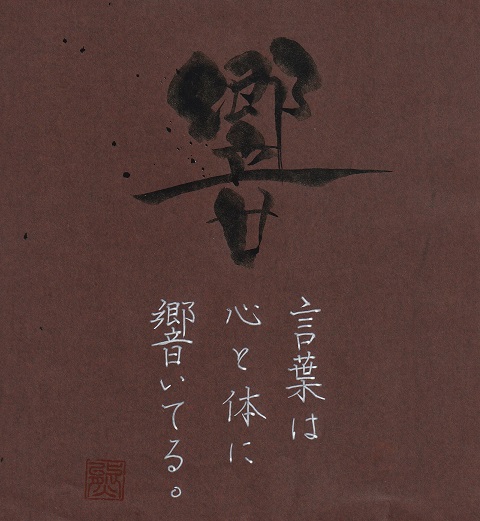 響
言葉は
心と体に
響いてる。